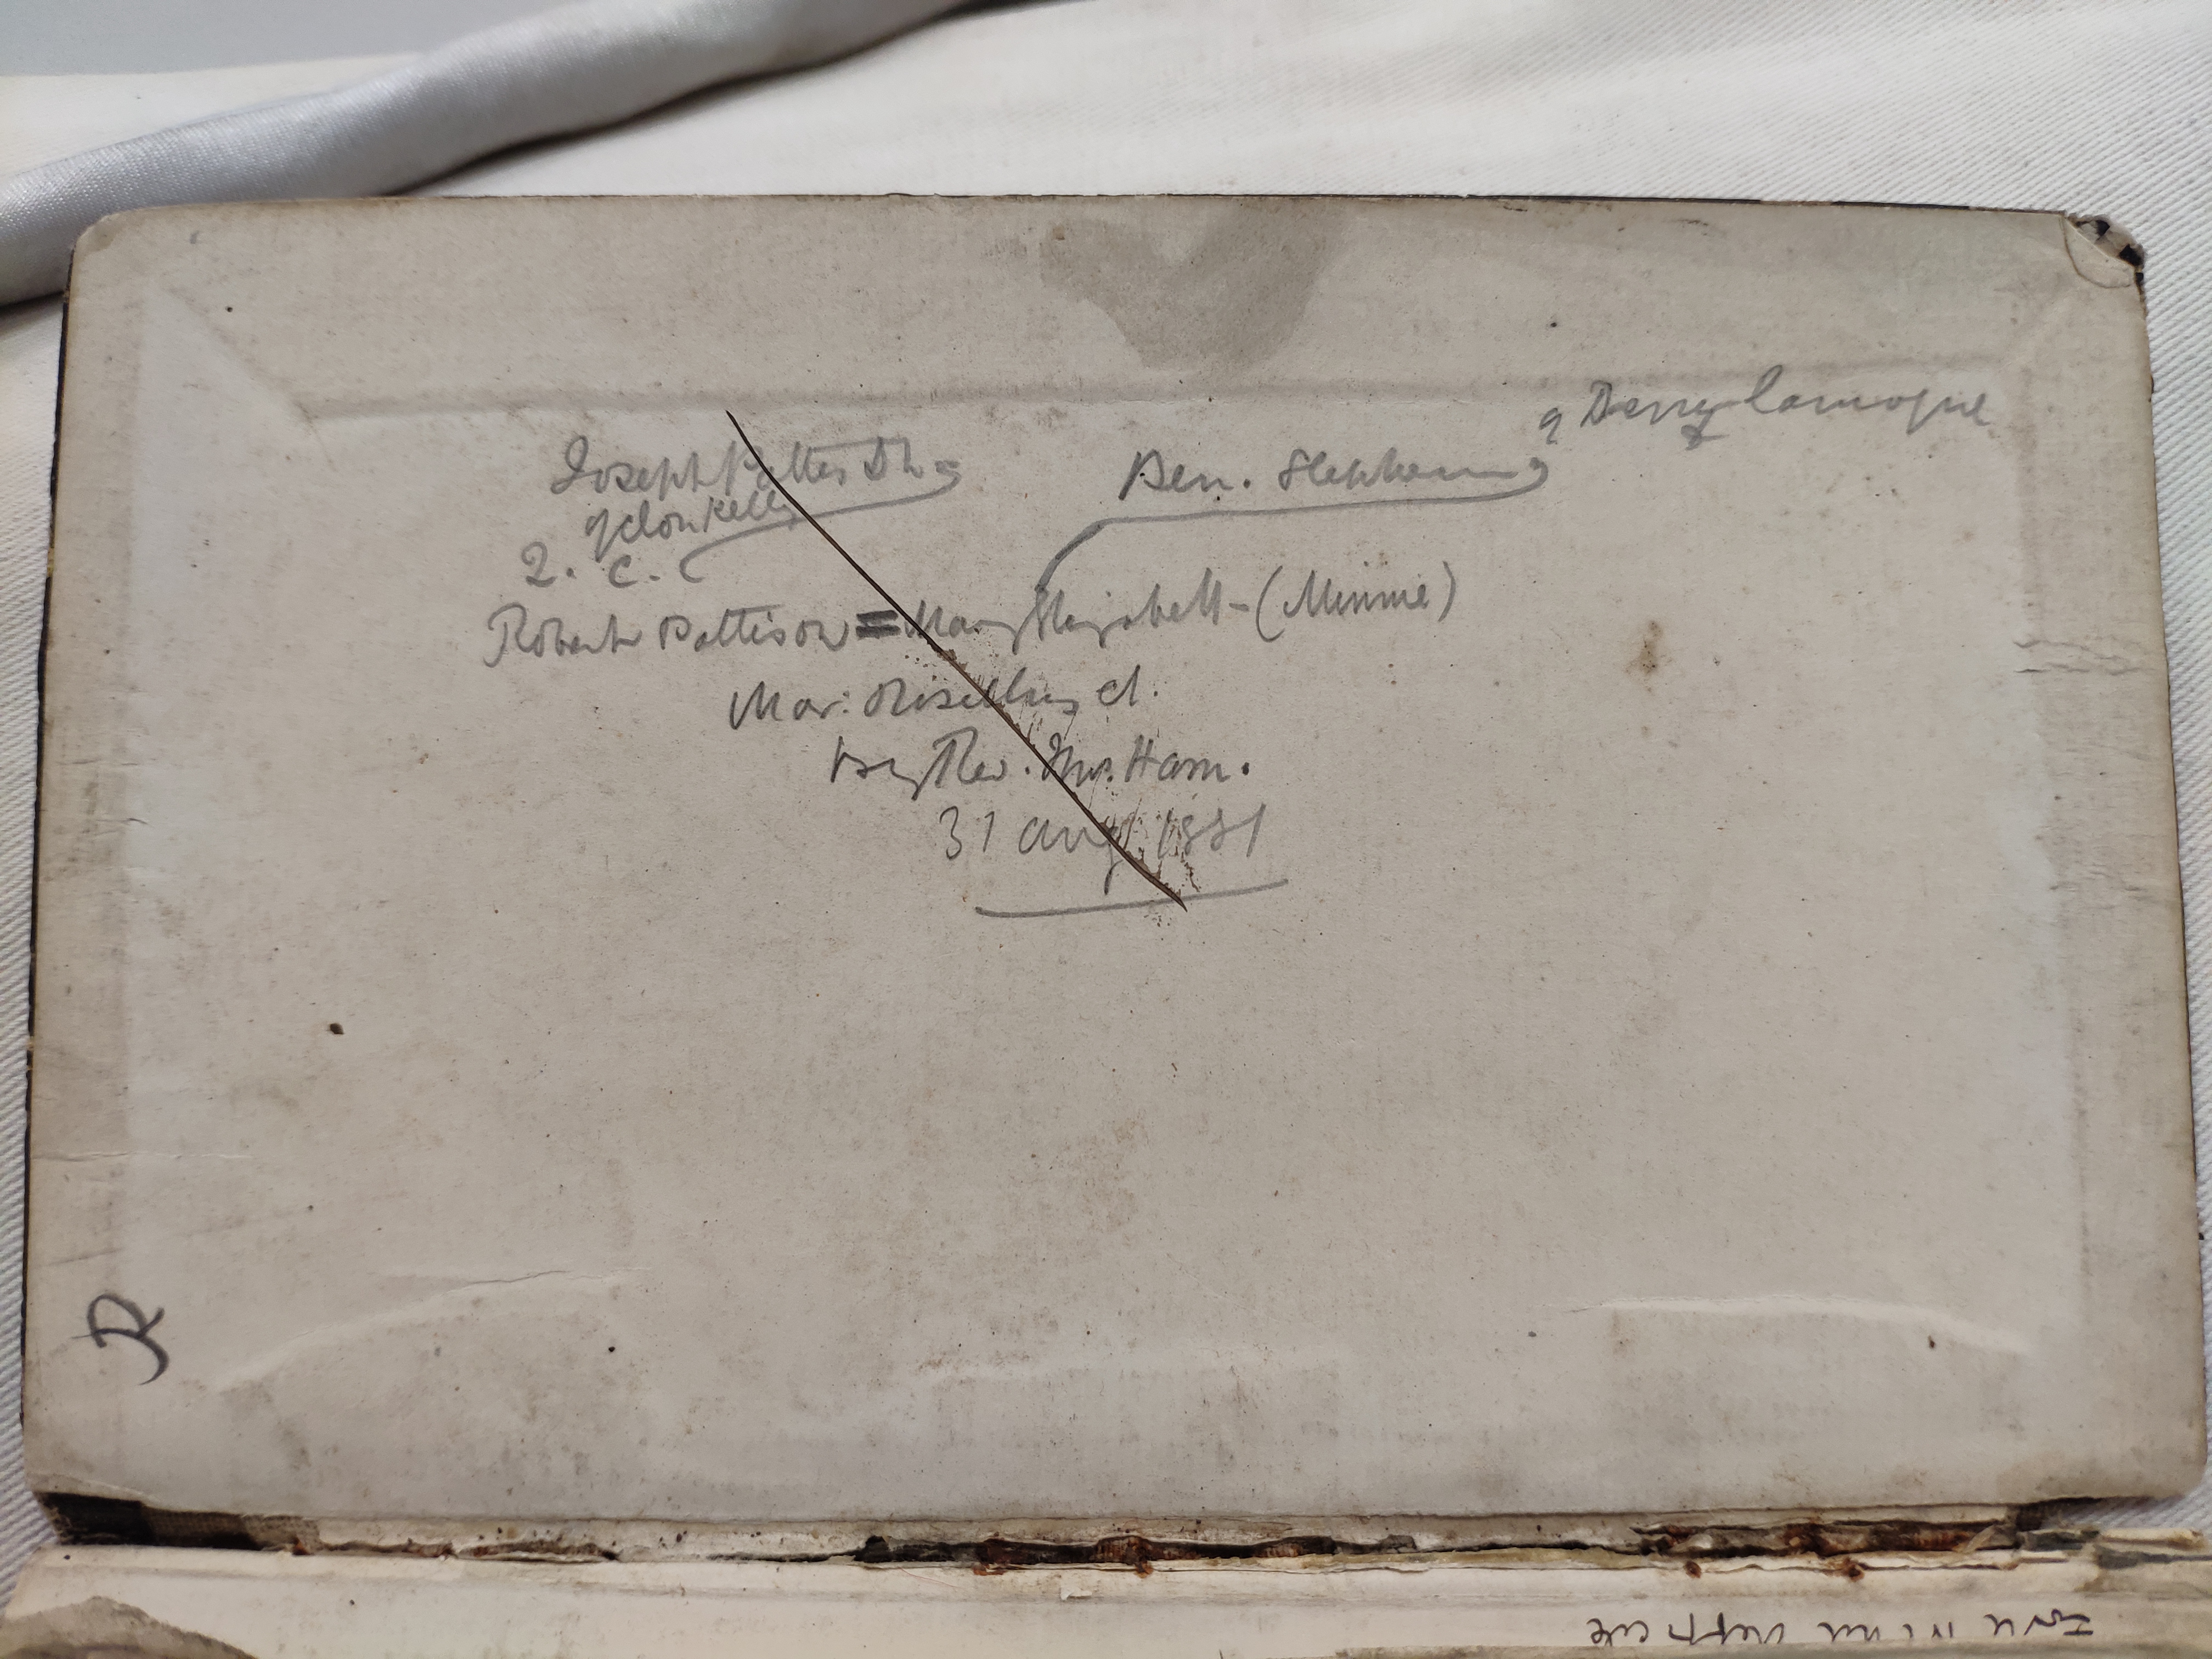 of Derrylamogue
Joseph Pattison = Ben. Stephens
of Clonkelly
2. C.
Robert Pattison = Mary Elizabeth - (Minnie)
Mar: ch.
by Rev. Jno. Ham.
31 Aug. 1881
R